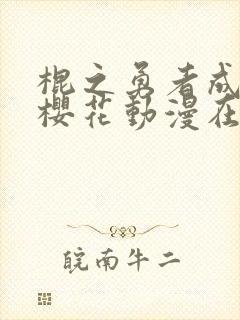 棍之勇者成
櫻花動漫在
皖南牛二